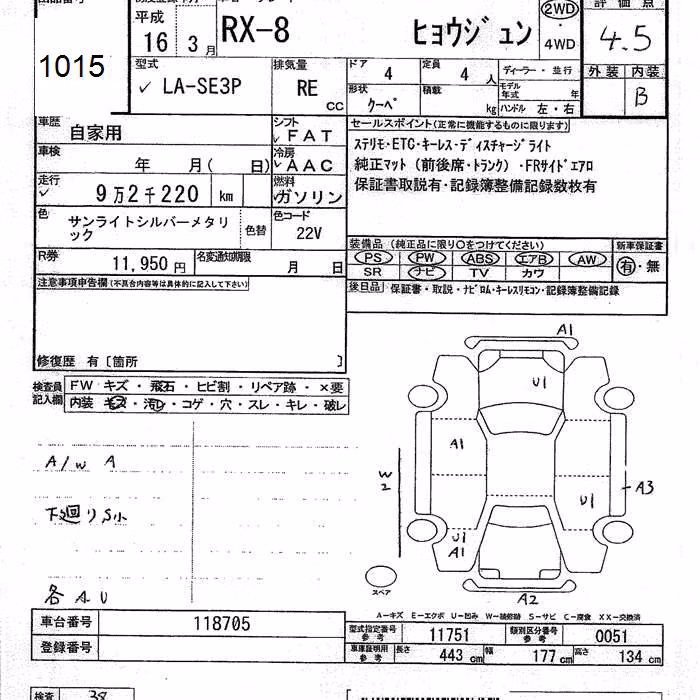 出品番号
1015
平成 16 3 月
RX-8
ヒョウジュン
2WD
・
4WD
評 価 点
4.5
型式
✓ LA-SE3P
排気量
RE
CC
ドア 4
定員 4 人
ディーラー・並行
モデル年式 年
外装 内装
B
形状 クーペ
積載 kg
ハンドル 左・右
車歴 自家用
シフト
✓ FAT
セールスポイント(正常に機能するものに限ります)
車検 年 月( 日)
冷房
✓ AAC
ステリモ・ETC・キーレス・ディスチャージライト
純正マット(前後席・トランク)・FRサイドエアロ
保証書取説有・記録簿整備記録数枚有
走行
✓ 9万2千220 km
燃料
✓ ガソリン
色 サンライトシルバーメタリック
色替
色コード
22V
R券 11,950円
名変通知期限
月 日
装備品(純正品に限り○をつけてください)
新車保証書
PS PW ABS エアB AW
有・無
SR ナビ TV カワ
注意事項申告欄(不具合内容等は具体的に記入して下さい)
後日品 保証書・取説・ナビロム・キーレスリモコン・記録簿整備記録
修復歴 有〔箇所 〕
検査員記入欄
FW キズ・飛石・ヒビ割・リペア跡・×要
内装 キズ・汚レ・コゲ・穴・スレ・キレ・破レ
A1
U1
A1
W2
A3
U1
U1
A1
A2
スペア
A/W A
下廻りS小
各 A U
A-キズ E-エクボ U-凹み W-補修跡 S-サビ C-腐食 XX-交換済
車台番号 118705
登録番号
型式指定番号 参考 11751
類別区分番号 参考 0051
車庫証明用 参考 長さ 443 cm 幅 177 cm 高さ 134 cm
検査 38